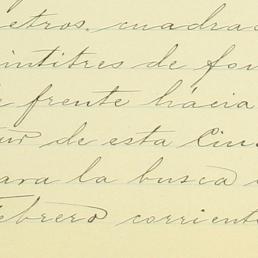 etros. cuadrad
intitres de fon
frente hácia
tur de esta Ciu
ara la busca
Febrero corriente